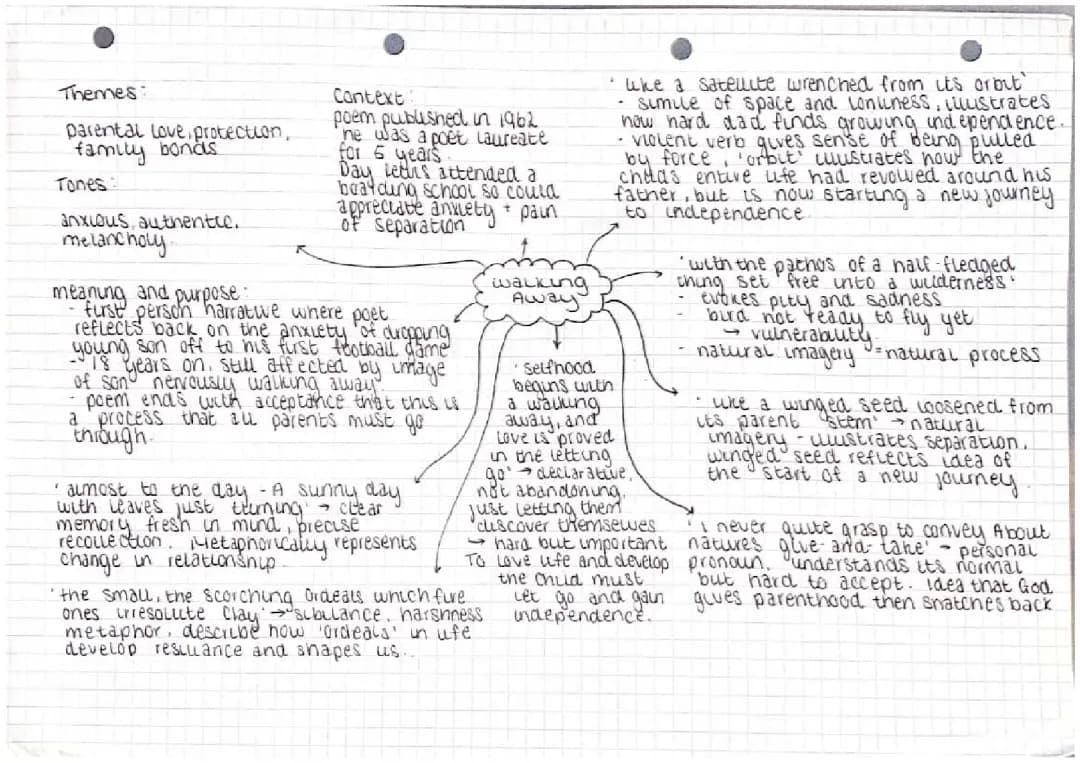 Themes:
parental love, protection,
family bonds
Tones:
anxious, authentic,
melancholy.
Context:
poem published in 1962
he was a poet laureate
for 5 years.
Day Lewis attended a
boarding school so could
appreciate anxiety + pain
of separation
'like a satellite wrenched from its orbit'
- simile of space and lonliness, illustrates
how hard dad finds growing independence.
- violent verb gives sense of being pulled
by force, 'orbit' illustrates how the
childs entire life had revolved around his
father, but is now starting a new journey
to independence
Walking
Away
'with the pathos of a half-fledged
thing set free into a wilderness'
- evokes pity and sadness
- bird not ready to fly yet
→ vulnerability
- natural imagery = natural process
meaning and purpose:
- first person narrative where poet
reflects back on the anxiety of dropping
young son off to his first football game
- 18 years on, still affected by image
of son 'nervously walking away'
- poem ends with acceptance that this is
a process that all parents must go
through.
'selfhood
begins with
a walking
away, and
love is proved
in the letting
go' → declarative,
not abandoning,
just letting them
discover themselves
→ hard but important
To love life and develop
the child must
let go and gain
independence.
'like a winged seed loosened from
its parent stem' → natural
imagery - illustrates separation.
winged seed reflects idea of
the start of a new journey.
'almost to the day - A sunny day
with leaves just turning' → clear
memory fresh in mind, precise
recollection. Metaphorically represents
change in relationship.
'I never quite grasp to convey About
natures give-and-take' - personal
pronoun, understands its normal
but hard to accept. idea that God
gives parenthood then snatches back
'the small, the scorching ordeals which fire
ones irresolute clay' → sibilance, harshness
metaphor, describe how 'ordeals' in life
develop resiliance and shapes us.